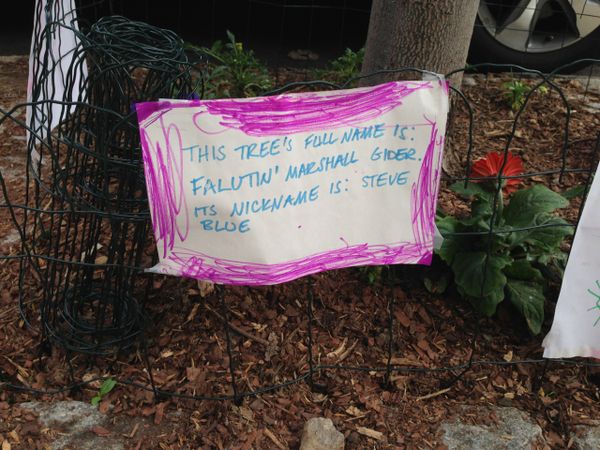 THIS TREE'S FULL NAME IS:
FALUTIN' MARSHALL GIDER.
ITS NICKNAME IS: STEVE
BLUE